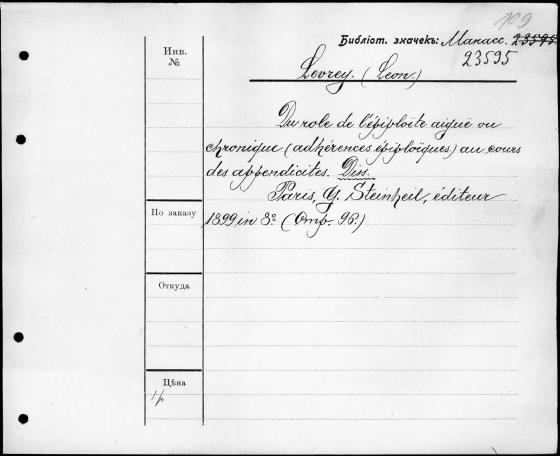 109
Библіот. значекъ: Манасс. 23595
23595
Инв.
№
Levrey. (Leon.)
Du role de l'épiploïte aiguë ou
chronique (adhérences épiploïques) au cours
des appendicites. Diss.
Paris, G. Steinheil, éditeur
1899 in 8º. (Стр. 96.)
По заказу
Откуда
Цѣна
1 р